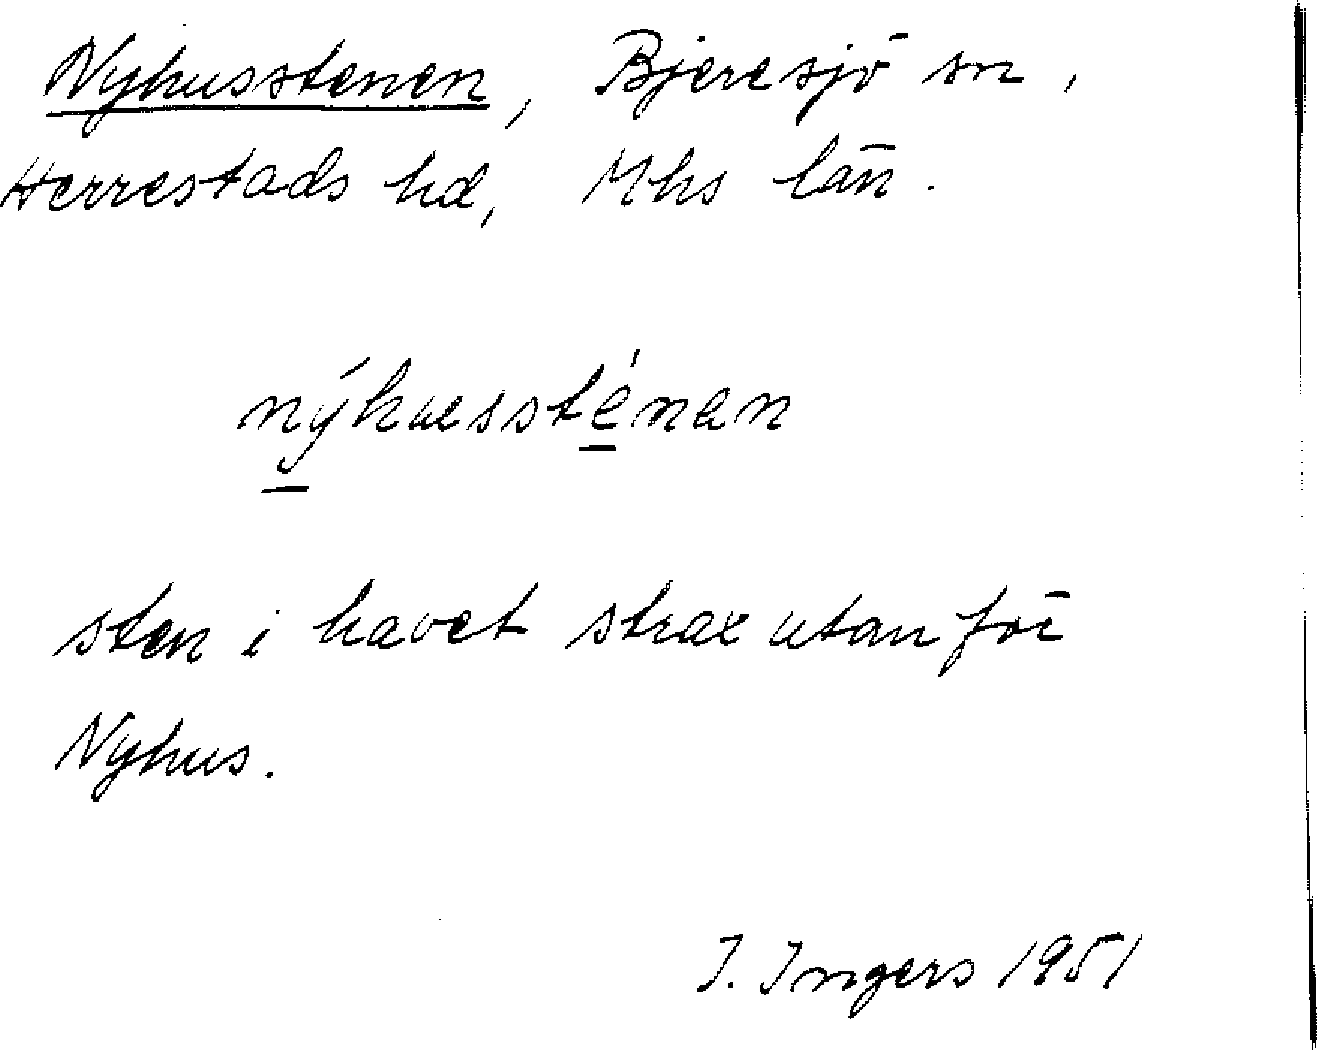 Nyhusstenen, Bjeresjö sn,
Herrestads hd, Mhs län.
nýhuessténen
sten i havet strax utanför
Nyhus.
I. Ingers 1951